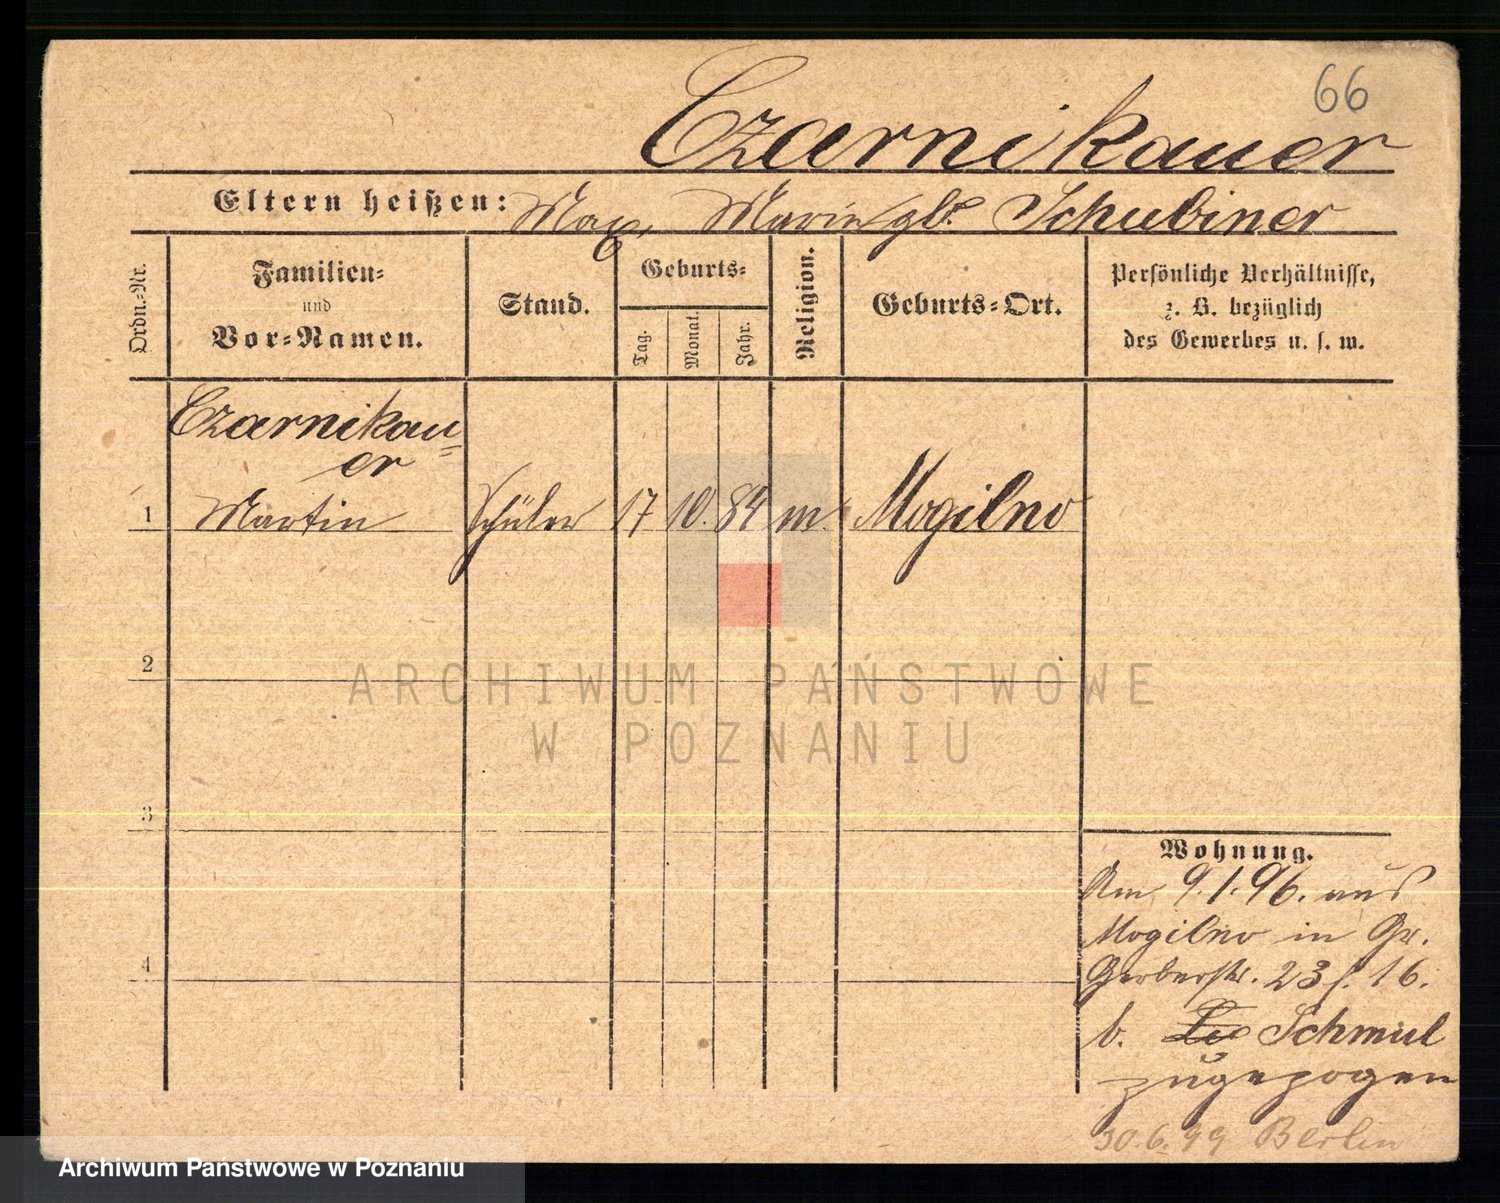 66
Czarnikauer
Eltern heißen: Max, Marie gb. Schubiner
Ordn.-Nr.
Familien-
und
Vor-Namen.
Stand.
Geburts-
Tag.
Monat.
Jahr.
Religion.
Geburts-Ort.
Persönliche Verhältnisse,
z. B. bezüglich
des Gewerbes u. s. w.
Czarnikau=
er
1 Martin Schüler 17 10. 84 m. Mogilno
2
ARCHIWUM PAŃSTWOWE
W POZNANIU
3
Wohnung.
Am 9.1.96. aus
Mogilno in Gr.
4
Gerberstr. 23 16.
b. Schmul
zugezogen
30.6.99 Berlin
Archiwum Państwowe w Poznaniu